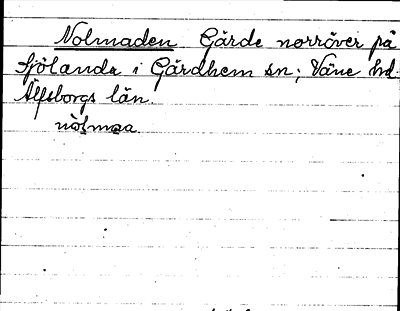 Nolmaden Gärde norröver på
Sjölanda i Gärdhem sn; Väne hd.
Älfsborgs län.
nòlmaa